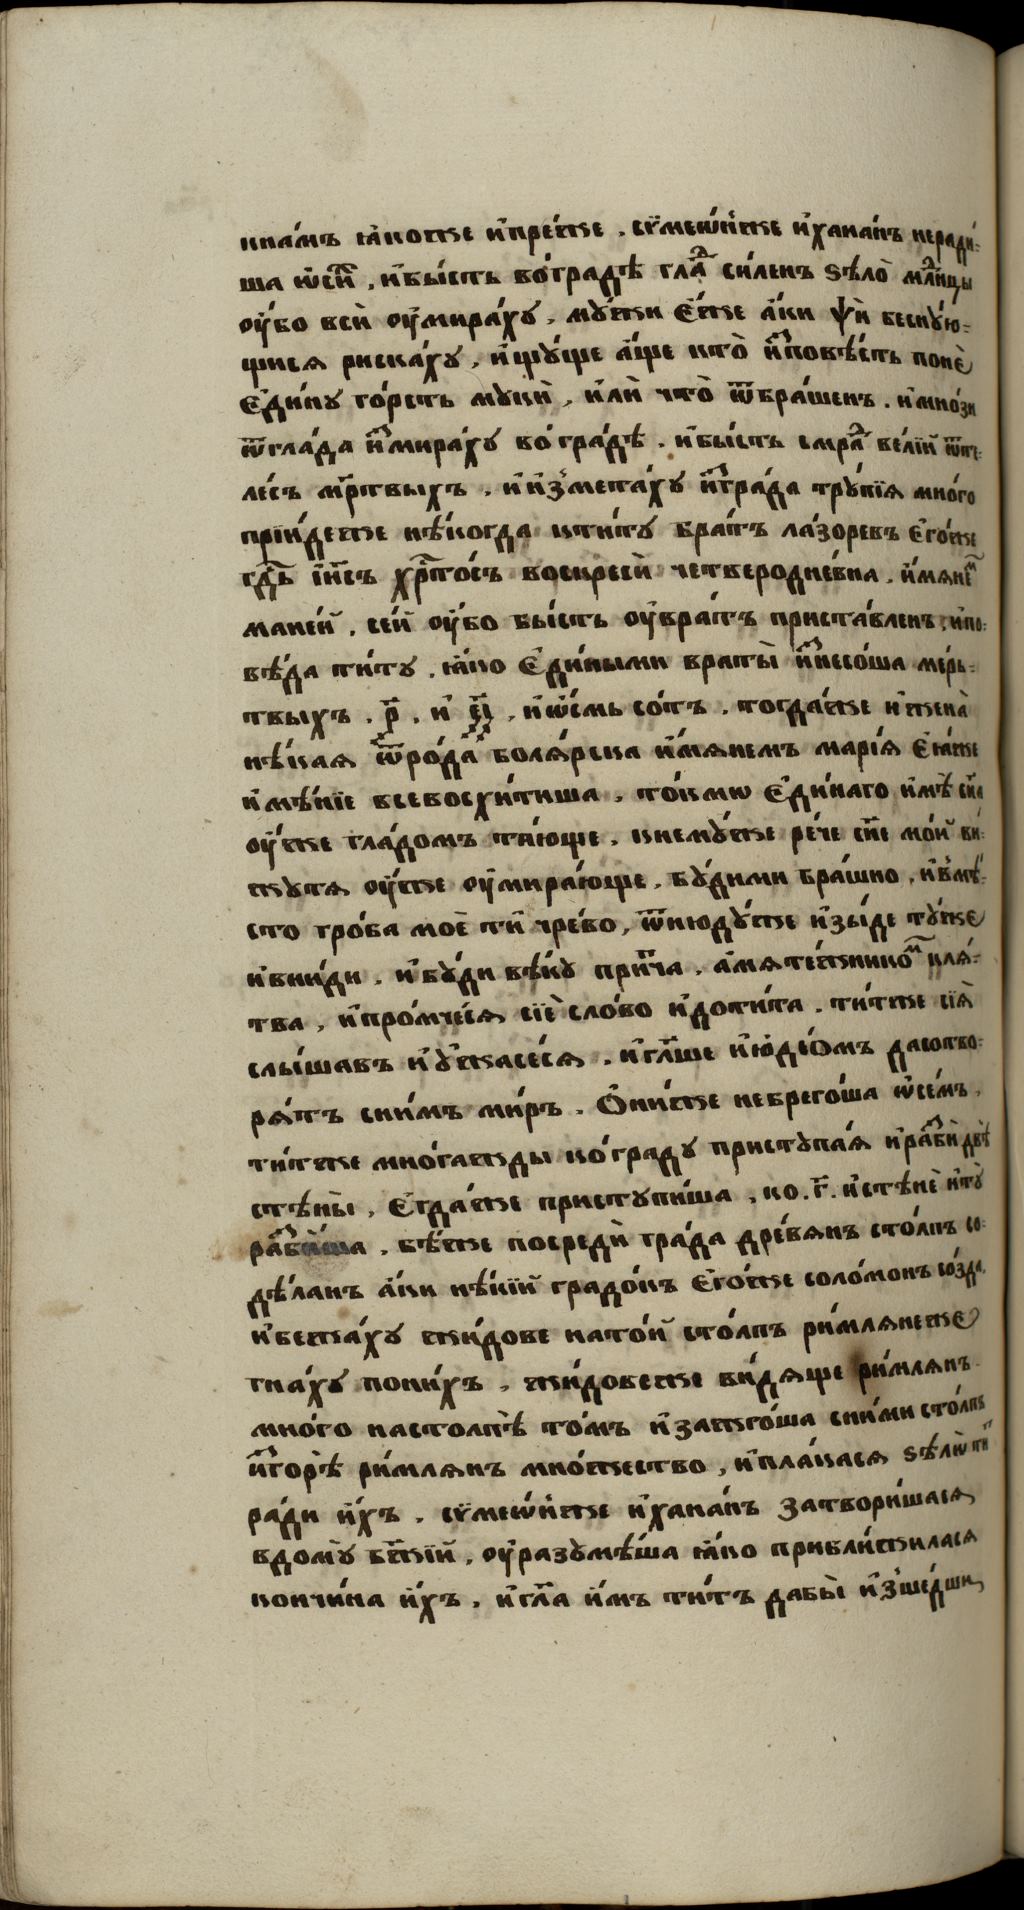 ннамъ ꙗ҆коже и҆пре́же . сѷмео́нже и҆хана́нъ неради́-
ша ѡ҆се́мъ , и҆бы́сть во́градѣ гла́дъ си́ленъ ѕѣло̀ млⷣнцы
оу҆́бо всѝ оу҆мира́хꙋ , мꙋ́жи є҆́же а҆́ки ѱѝ беснꙋ́ю-
щися риска́хꙋ , и҆́щꙋще а҆́ще кто̀ и҆сповѣ́сть понѐ
є҆ди́нꙋ го́рсть мꙋкѝ , и҆лѝ что̀ ѿбра́шенъ . и҆мно́зи
ѿгла́да и҆змира́хꙋ во́градѣ . и҆бы́сть смра́дъ ве́лїй ѿте-
ле́съ ме́ртвыхъ . и҆и҆змета́хꙋ и҆згра́да трꙋ́пїя мно́го
прїи́деже нѣ́когда кти́тꙋ бра́тъ ла́зоревъ є҆го́же
гдⷭ҇ь і҆и҃съ хрⷭ҇то́съ воскресѝ четверодне́вна . и҆́мянемъ
мане́й . се́й оу҆́бо бы́сть оу҆вра́тъ приста́вленъ , и҆по-
вѣ́да ти́тꙋ . ꙗ҆́ко є҆ди́ными враты̀ и҆знесо́ша ме́рь-
твыхъ . р҃ . и҆ п҃і . и҆ѻ҆́смь со́тъ . тогда́же и҆жена̀
нѣ́кая ѿро́да боля́рска и҆́мянемъ марі́я є҆ꙗ́же
и҆мѣ́нїе всевосхи́тиша . то́кмѡ є҆ди́наго и҆мѣ̀ сн҃а
оу҆́же гла́домъ та́юще . кнемꙋ́же ре́че сн҃е мо́й ви́-
жꙋтя оу҆́же оу҆мира́юще . бꙋ́дими бра́шно . и҆вмѣ́-
сто гро́ба моѐ тѝ чре́во , ѿню́дꙋже и҆зы́де тꙋ́же
и҆вни́ди . и҆бꙋ́ди вѣ́кꙋ при́тча . а҆мяте́жникомъ кля́-
тва , и҆промче́ся сїѐ сло́во и҆доти́та . ти́тже сїя̀
слы́шавъ и҆ꙋ҆жасе́ся . и҆гл҃ше и҆ю҆де́ѡмъ дасотво-
ря́тъ сни́мъ ми́ръ . Ѻ҆ни́же небрего́ша ѡ҆се́мъ .
ти́тже мно́гажды ко́градꙋ пристꙋпа́я и҆разбѝ двѣ̀
стѣны̀ , є҆гда́же пристꙋпи́ша , ко . г҃ . и҆стѣнѐ и҆тꙋ̀
разби́ша . бѣ́же посредѝ гра́да дре́вянъ сто́лпъ со-
дѣ́ланъ а҆́ки нѣ́кїй градо́къ є҆го́же соломо́нъ созда̀ .
и҆бежа́хꙋ жи́дове нато́й сто́лпъ ри́млянеже
гна́хꙋ пони́хъ . жи́довеже ви́дяще ри́млянъ
мно́го настолпѣ̀ то́мъ и҆зажго́ша сни́ми сто́лпъ
и҆згорѣ̀ ри́млянъ мно́жество , и҆пла́кася ѕѣлѡ̀ ти́тъ
ра́ди и҆́хъ . сѷмео́нже и҆хана́нъ затвори́шася
вдомꙋ̀ бж҃їй . оу҆разꙋмѣ́ша ꙗ҆́ко прибли́жилася
кончи́на и҆́хъ . и҆гл҃а и҆́мъ ти́тъ дабы̀ и҆зше́дши